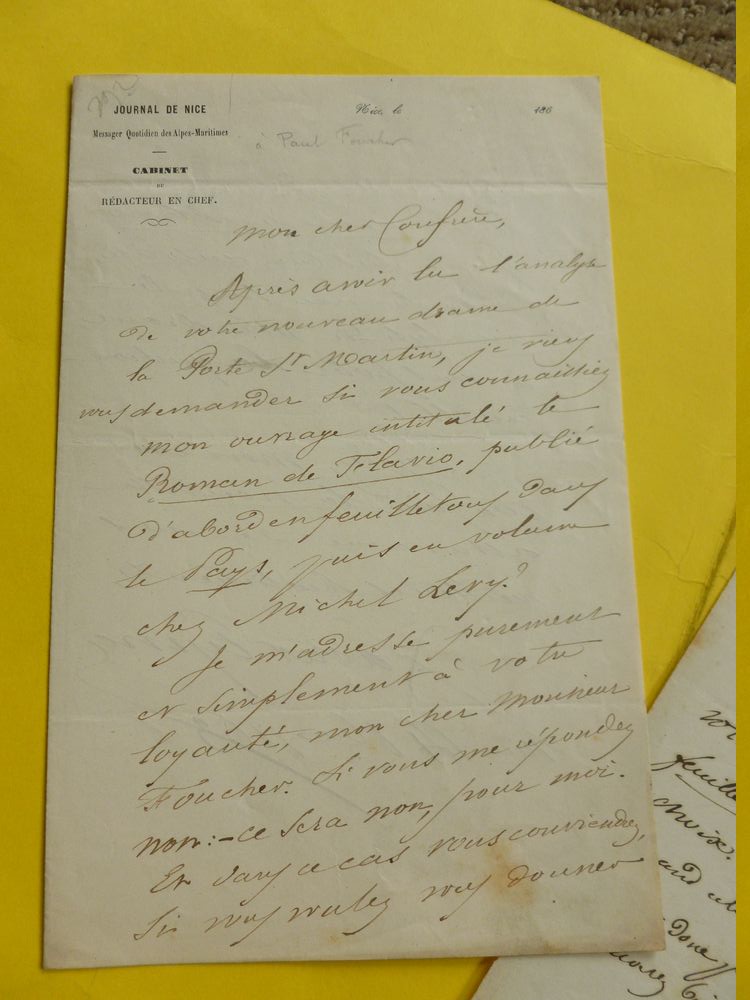 JOURNAL DE NICE
Messager Quotidien des Alpes-Maritimes
CABINET
DU
RÉDACTEUR EN CHEF.
Nice, le 186
à Paul Foucher
Mon cher Confrère,
Après avoir lu l'analyse
de votre nouveau drame de
la Porte St Martin, je viens
vous demander si vous connaissiez
mon ouvrage intitulé le
Roman de Flavio, publié
d'abord en feuilletons dans
le Pays, puis en volume
chez Michel Levy?
Je m'adresse purement
et simplement à votre
loyauté, mon cher Monsieur
Foucher. Si vous me répondez
non: - ce sera non, pour moi.
Et dans ce cas vous conviendrez,
si vous voulez vous donner
feuille
choix.